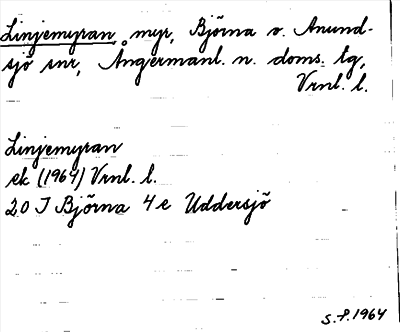 Linjemyran, myr, Björna o. Anund-
sjö snr, Ångermanl. n. doms. tg,
Vrnl. l.
Linjemyran
ek (1964) Vrnl. l.
20 J Björna 4 e Uddersjö
S. P. 1964